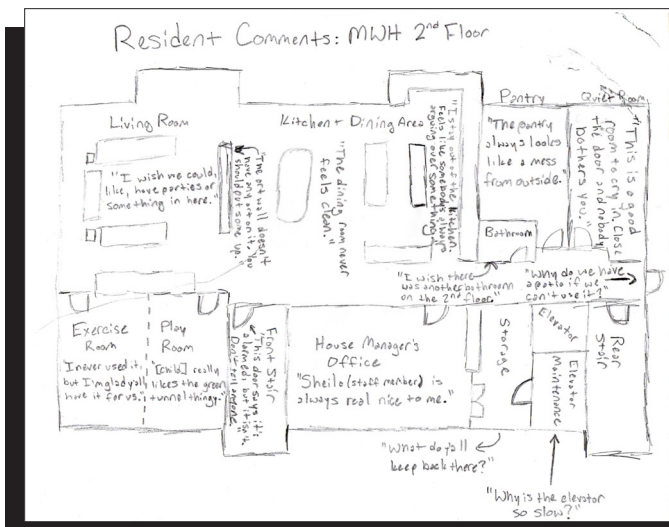 Resident Comments: MWH 2nd Floor
Living Room
"I wish we could,
like, have parties or
something in here."
"The art wall doesn't
have any art on it. You
should put some up."
Kitchen + Dining Area
"The dining room never
feels clean."
"I stay out of the kitchen.
Feels like somebody's always
arguing over something."
Pantry
"The pantry
always looks
like a mess
from outside."
Bathroom
Quiet Room
"This is a good
room to cry in. Close
the door and nobody
bothers you."
"I wish there
was another bathroom
on the 2nd floor."
"Why do we have
a patio if we
can't use it?"
Exercise
Room
"I never used it,
but I'm glad y'all
have it for us."
Play
Room
"[Child] really
likes the green
tunnel thingy."
Front Stair
"This door says it's
alarmed, but it isn't.
Don't tell anyone."
House Manager's
Office
"Sheila (staff member) is
always real nice to me."
Storage
Elevator
Elevator
Maintenance
Rear
Stair
"What do y'all
keep back there?"
"Why is the elevator
so slow?"